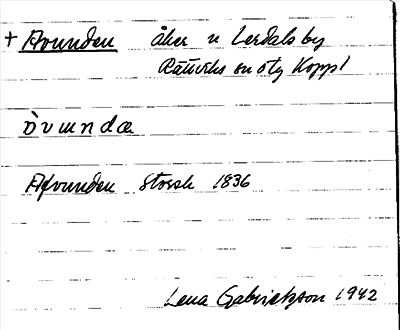 + Avunden åker n Lerdals by
Rättviks sn
òvunda
Afvunden Storsk 1836
Lena Gabrielsson 1942